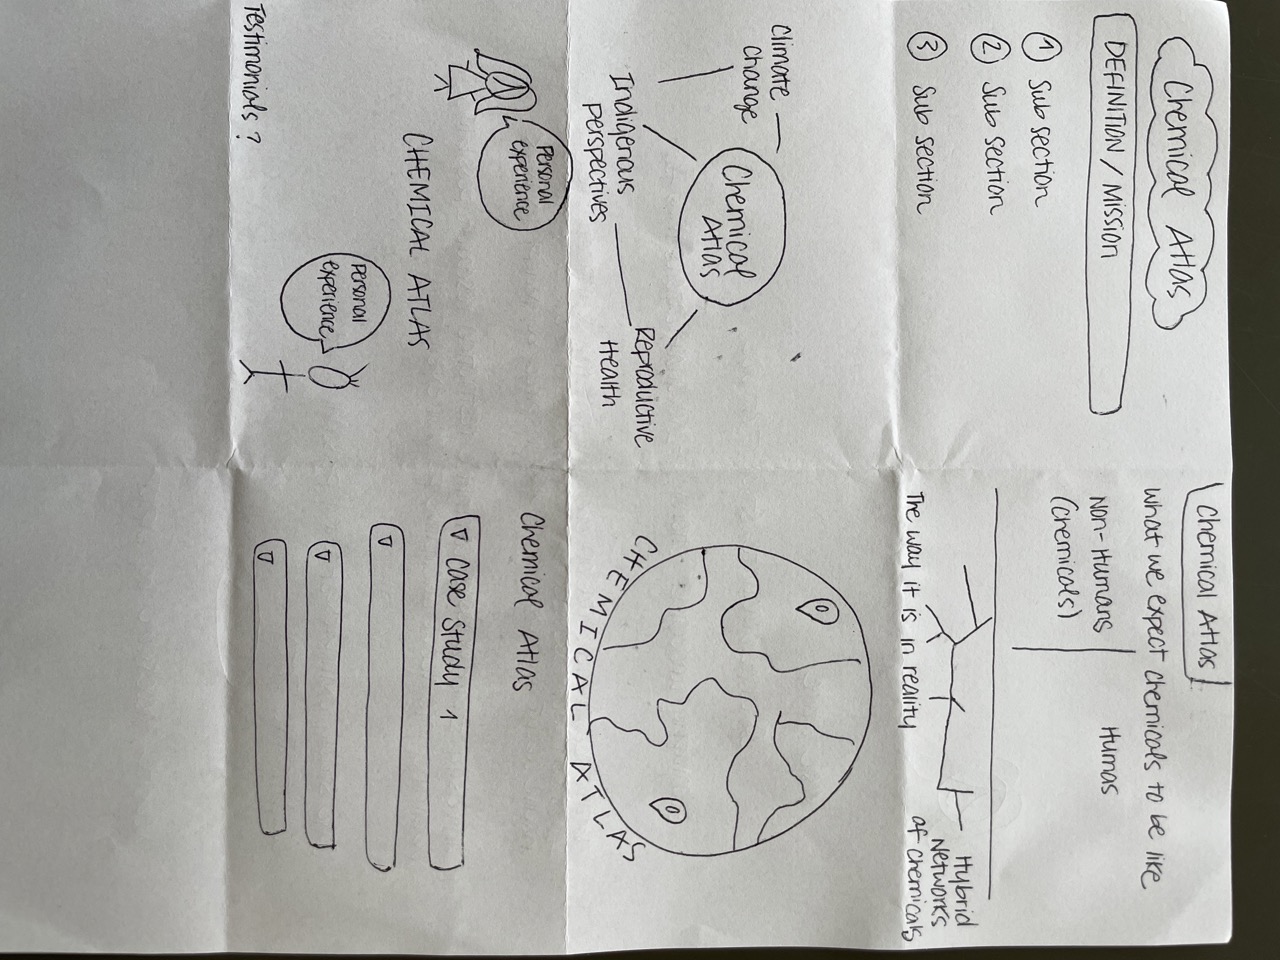 Chemical Atlas
DEFINITION / Mission
1 Sub section
2 Sub section
3 Sub section
Chemical Atlas
what we expect chemicals to be like
Non-Humans
(chemicals)
Humas
Hybrid
Networks
of chemicals
The way it is in reality
Climate
change
Chemical
Atlas
Indigenous
perspectives
Reproductive
Health
CHEMICAL ATLAS
Personal
experience
CHEMICAL ATLAS
Personal
experience
Testimonials ?
Chemical Atlas
Case study 1